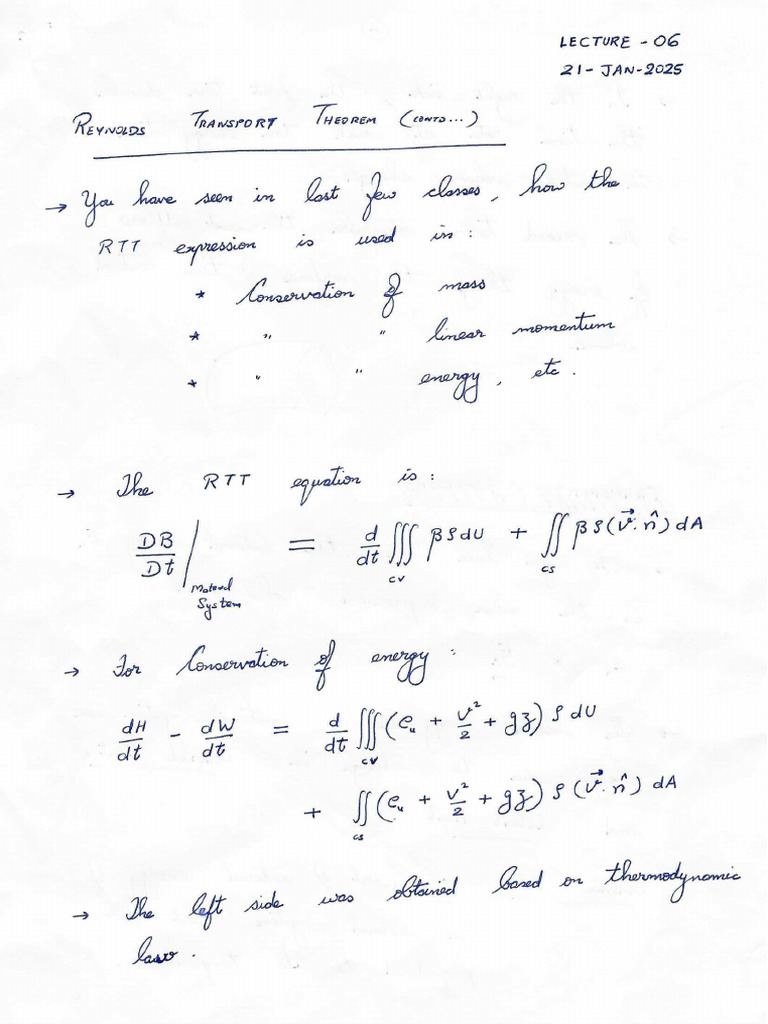 LECTURE - 06
21 - JAN - 2025
REYNOLDS TRANSPORT THEOREM (CONTD...)
→ You have seen in last few classes, how the
RTT expression is used in :
* Conservation of mass
* " " linear momentum
* " " energy, etc.
→ The RTT equation is :
DB/Dt | Material System = d/dt ∭_CV βρdU + ∬_CS βρ(v⃗.n̂) dA
→ For Conservation of energy :
dH/dt - dW/dt = d/dt ∭_CV (e_u + v²/2 + gz) ρdU
+ ∬_CS (e_u + v²/2 + gz) ρ(v⃗.n̂) dA
→ The left side was obtained based on thermodynamic
law.